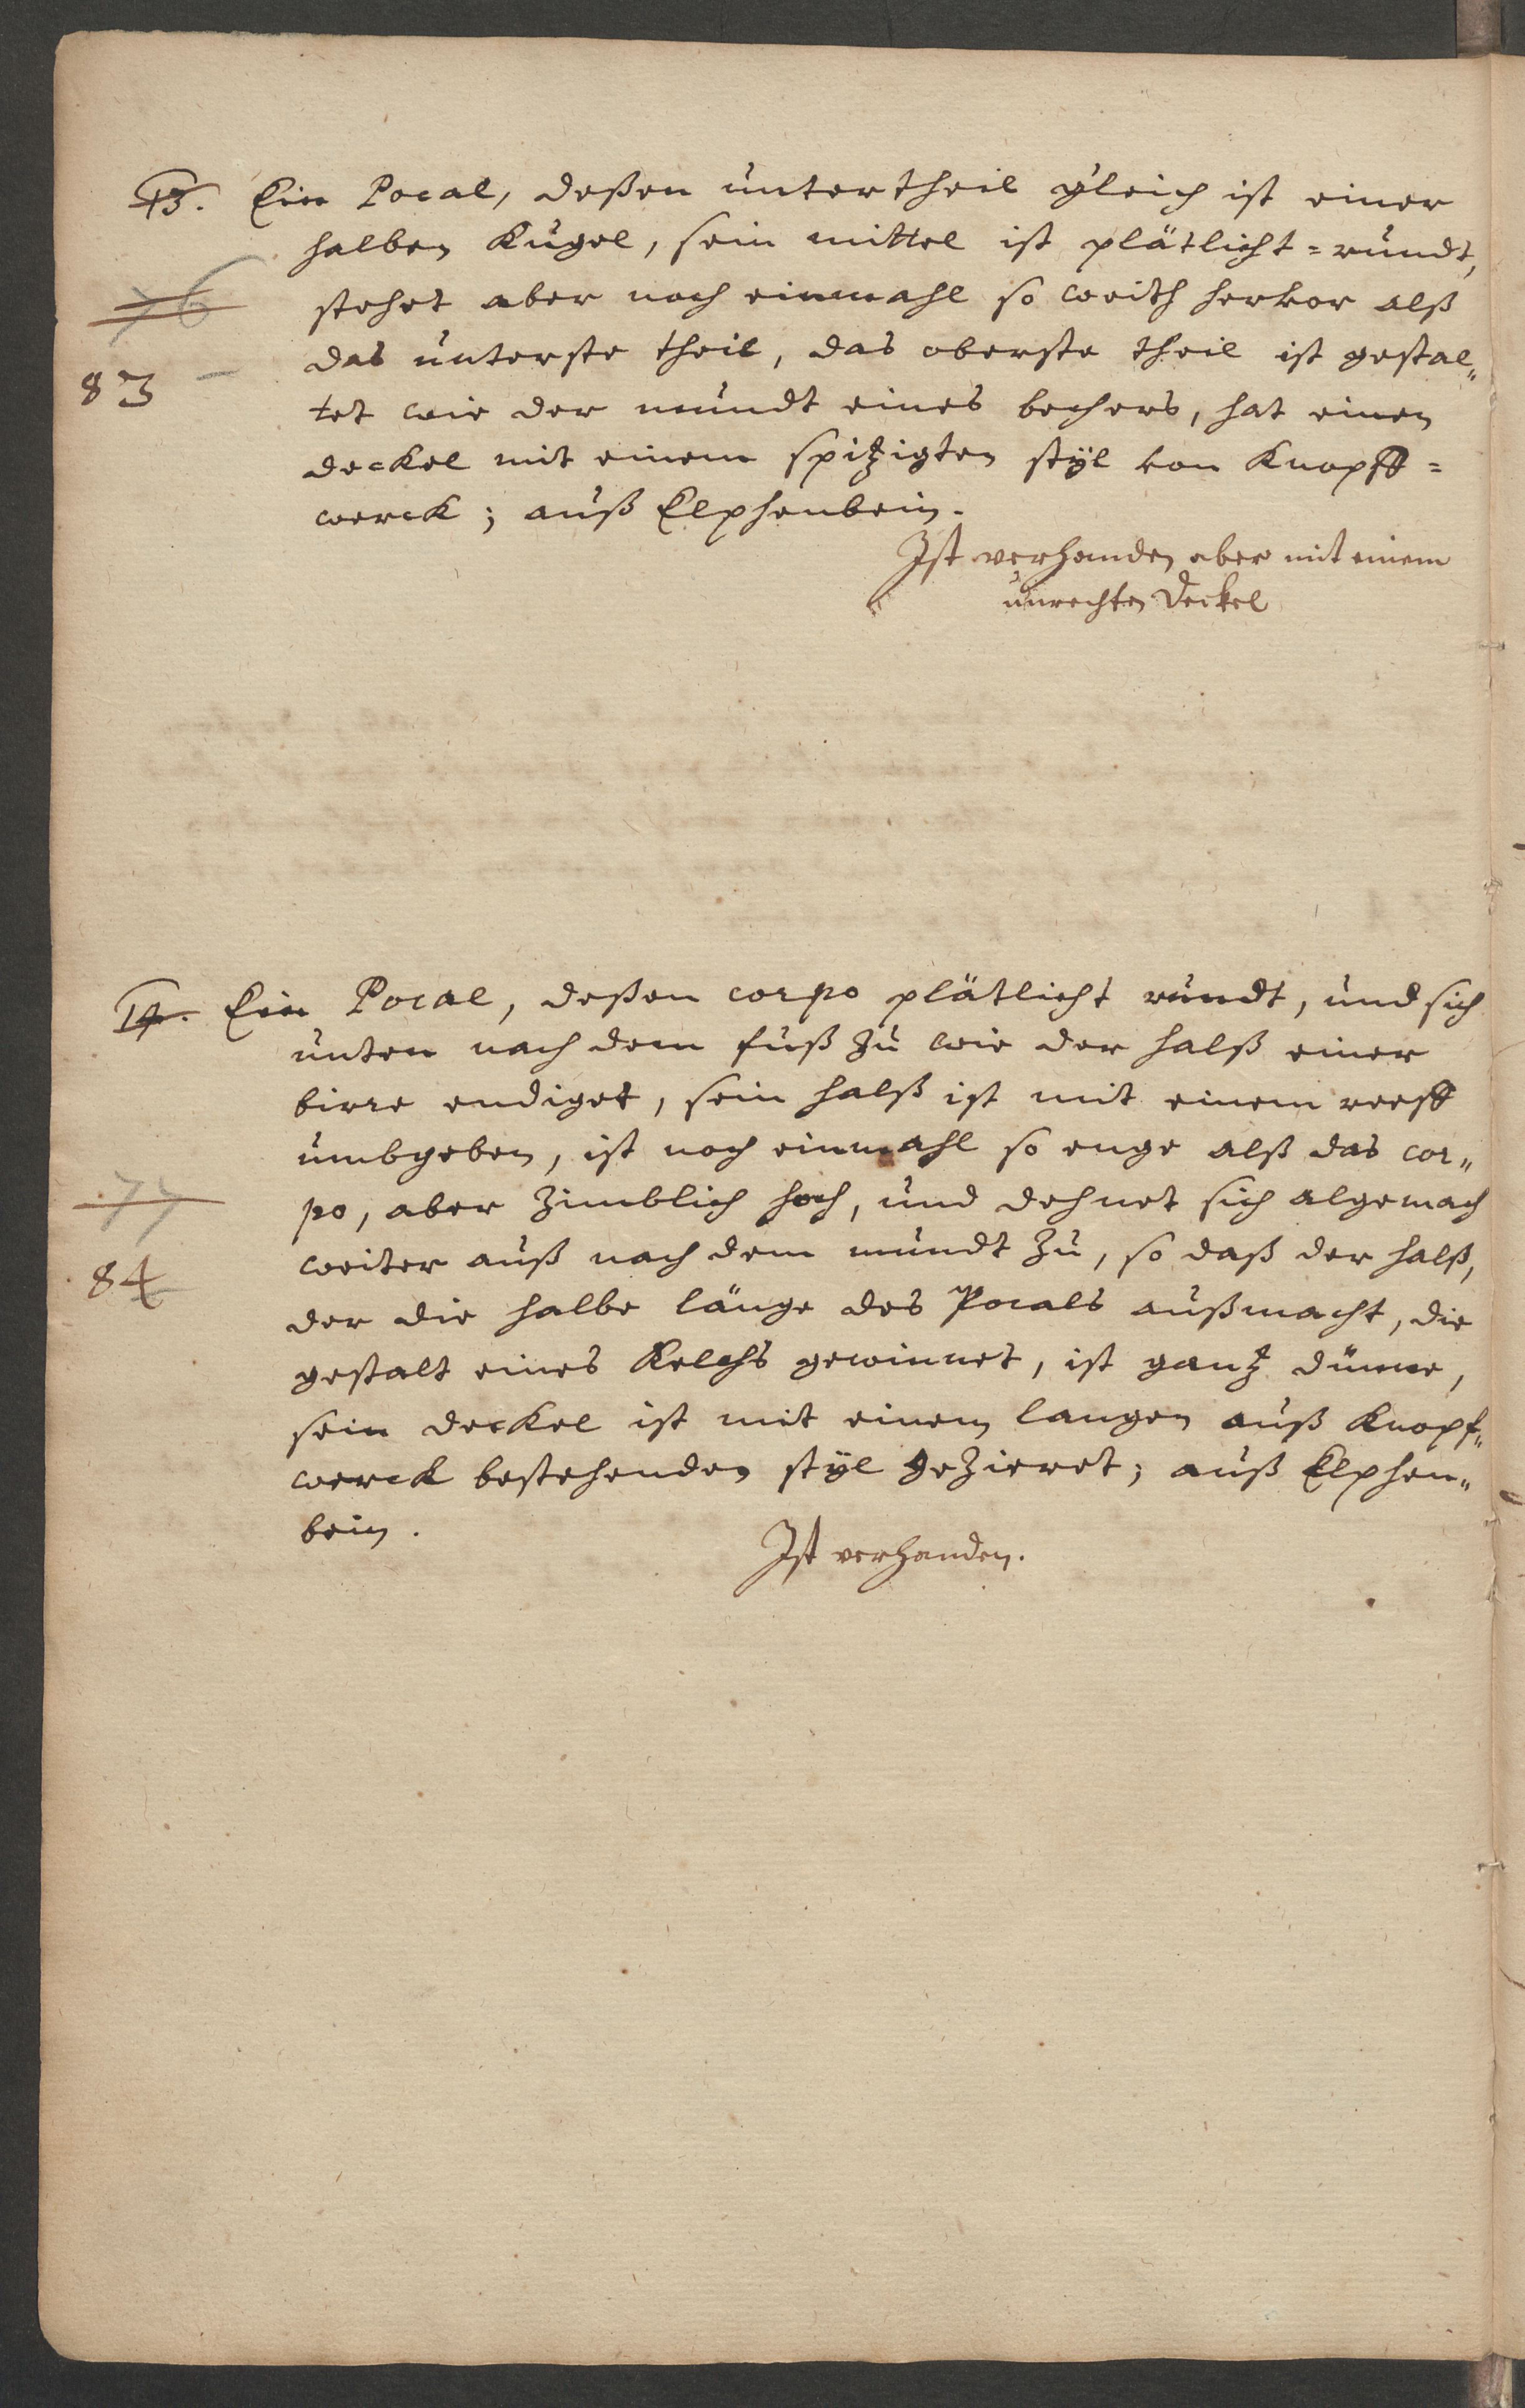 13. Ein Pocal, deßen untertheil gleich ist einer
halben Kugel, sein mittel ist plätlicht=rundt,
76
stehet aber noch einmahl so weith hervor alß
das unterste theil, das oberste theil ist gestal„
83 –
tet wie der mundt eines bechers, hat einen
deckel mit einem spitzigten styl von Knopff=
werck; auß Elphenbein.
Ist verhanden aber mit einem
unrechten Deckel
14. Ein Pocal, deßen corpo plätlicht rundt, und sich
unten nach dem fuß zu wie der halß einer
birre endiget, sein halß ist mit einem reeff
umbgeben, ist noch einmahl so enge alß das cor„
77
po, aber zimblich hoch, und dehnet sich algemach
weiter auß nach dem mundt zu, so daß der halß,
84
der die halbe länge des Pocals außmacht, die
gestalt eines Kelchs gewinnet, ist gantz dünne,
sein deckel ist mit einem langen auß Knopf„
werck bestehenden styl gezieret; auß Elphen„
bein.
Ist verhanden.